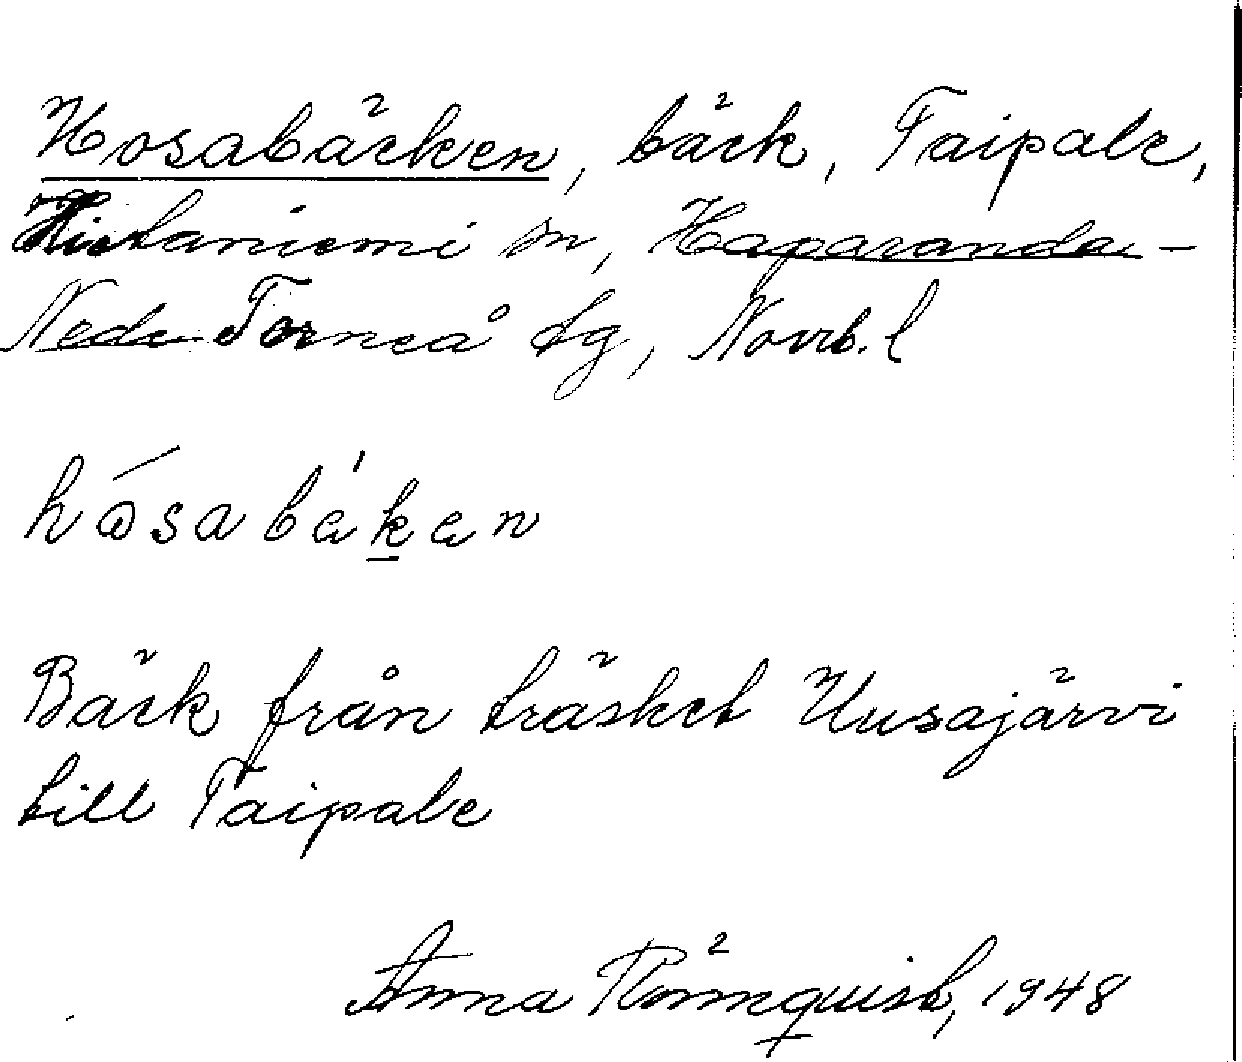 Hosabäcken, bäck, Taipale,
Hietaniemi sn, Haparanda-
Neder Torneå tg, Norrb. l
hósabäken
Bäck från träsket Uusajärvi
till Taipale
Anna Rönnquist, 1948